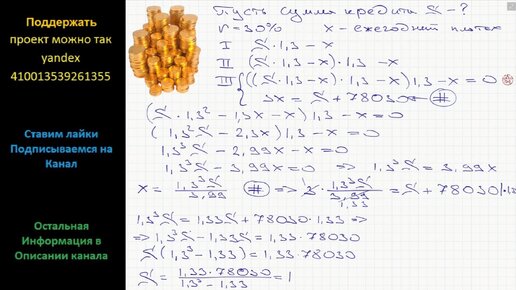 Поддержать
проект можно так
yandex
410013539261355
Ставим лайки
Подписываемся на
Канал
Остальная
Информация в
Описании канала
Пусть сумма кредита S - ?
r = 30% x - ежегодный платеж
I S · 1,3 - x
II (S · 1,3 - x) · 1,3 - x
III ((S · 1,3 - x) · 1,3 - x) 1,3 - x = 0
3x = S + 78030 #
(S · 1,3² - 1,3x - x) 1,3 - x = 0
(1,3² S - 2,3x) 1,3 - x = 0
1,3³ S - 2,99x - x = 0
1,3³ S - 3,99x = 0 ⇒ 1,3³ S = 3,99x
x = 1,3³ S / 3,99 # ⇒ 3 · 1,3³ S / 3,99 1,33 = S + 78030 | · 1,33
1,3³ S = 1,33 S + 78030 · 1,33 ⇒
⇒ 1,3³ S - 1,33 S = 1,33 · 78030
S (1,3³ - 1,33) = 1,33 · 78030
S = 1,33 · 78030 / 1,3³ - 1,33 = 1